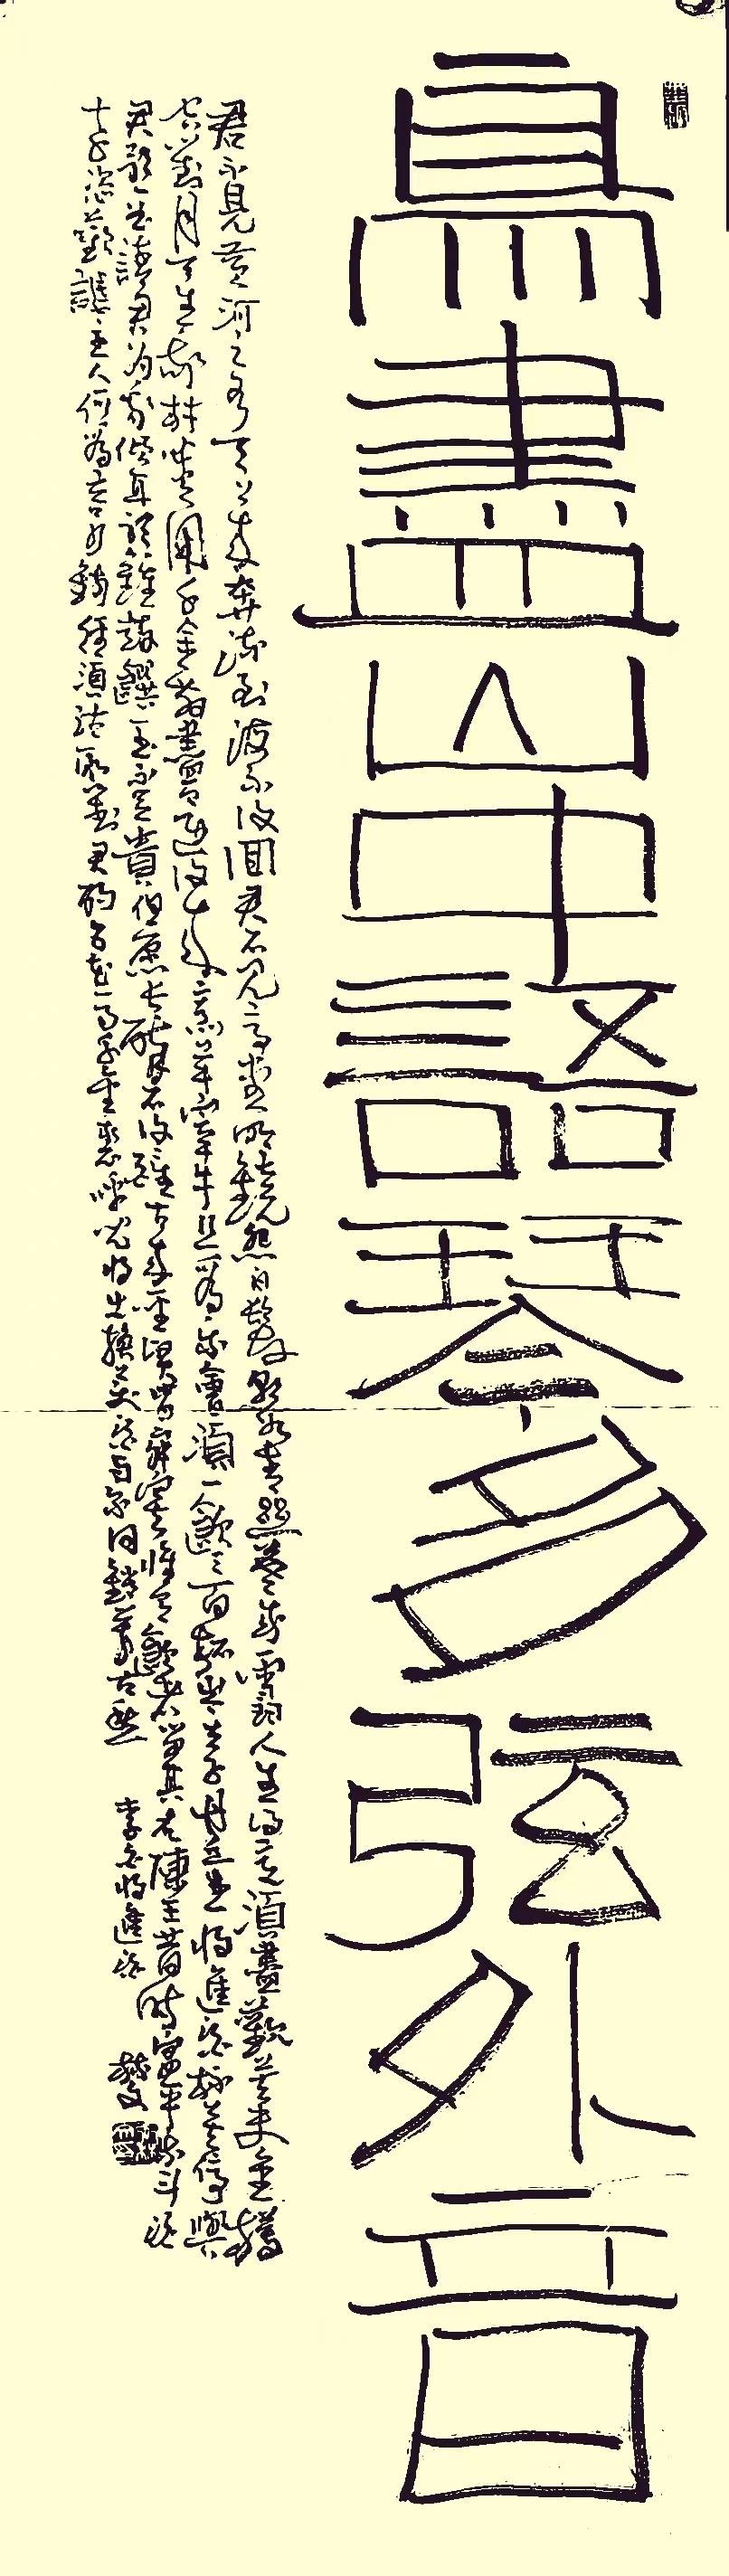 鳥盡山中語琴多弦外音
君不見黃河之水天上來奔流到海不復回君不見高堂明鏡悲白髮朝如青絲暮成雪人生得意須盡歡莫使金樽
空對月天生我材必有用千金散盡還復來烹羊宰牛且為樂會須一飲三百杯岑夫子丹丘生將進酒杯莫停與
君歌一曲請君為我傾耳聽鐘鼓饌玉不足貴但願長醉不復醒古來聖賢皆寂寞惟有飲者留其名陳王昔時宴平樂斗酒
十千恣歡謔主人何為言少錢徑須沽取對君酌五花馬千金裘呼兒將出換美酒與爾同銷萬古愁 李白將進酒